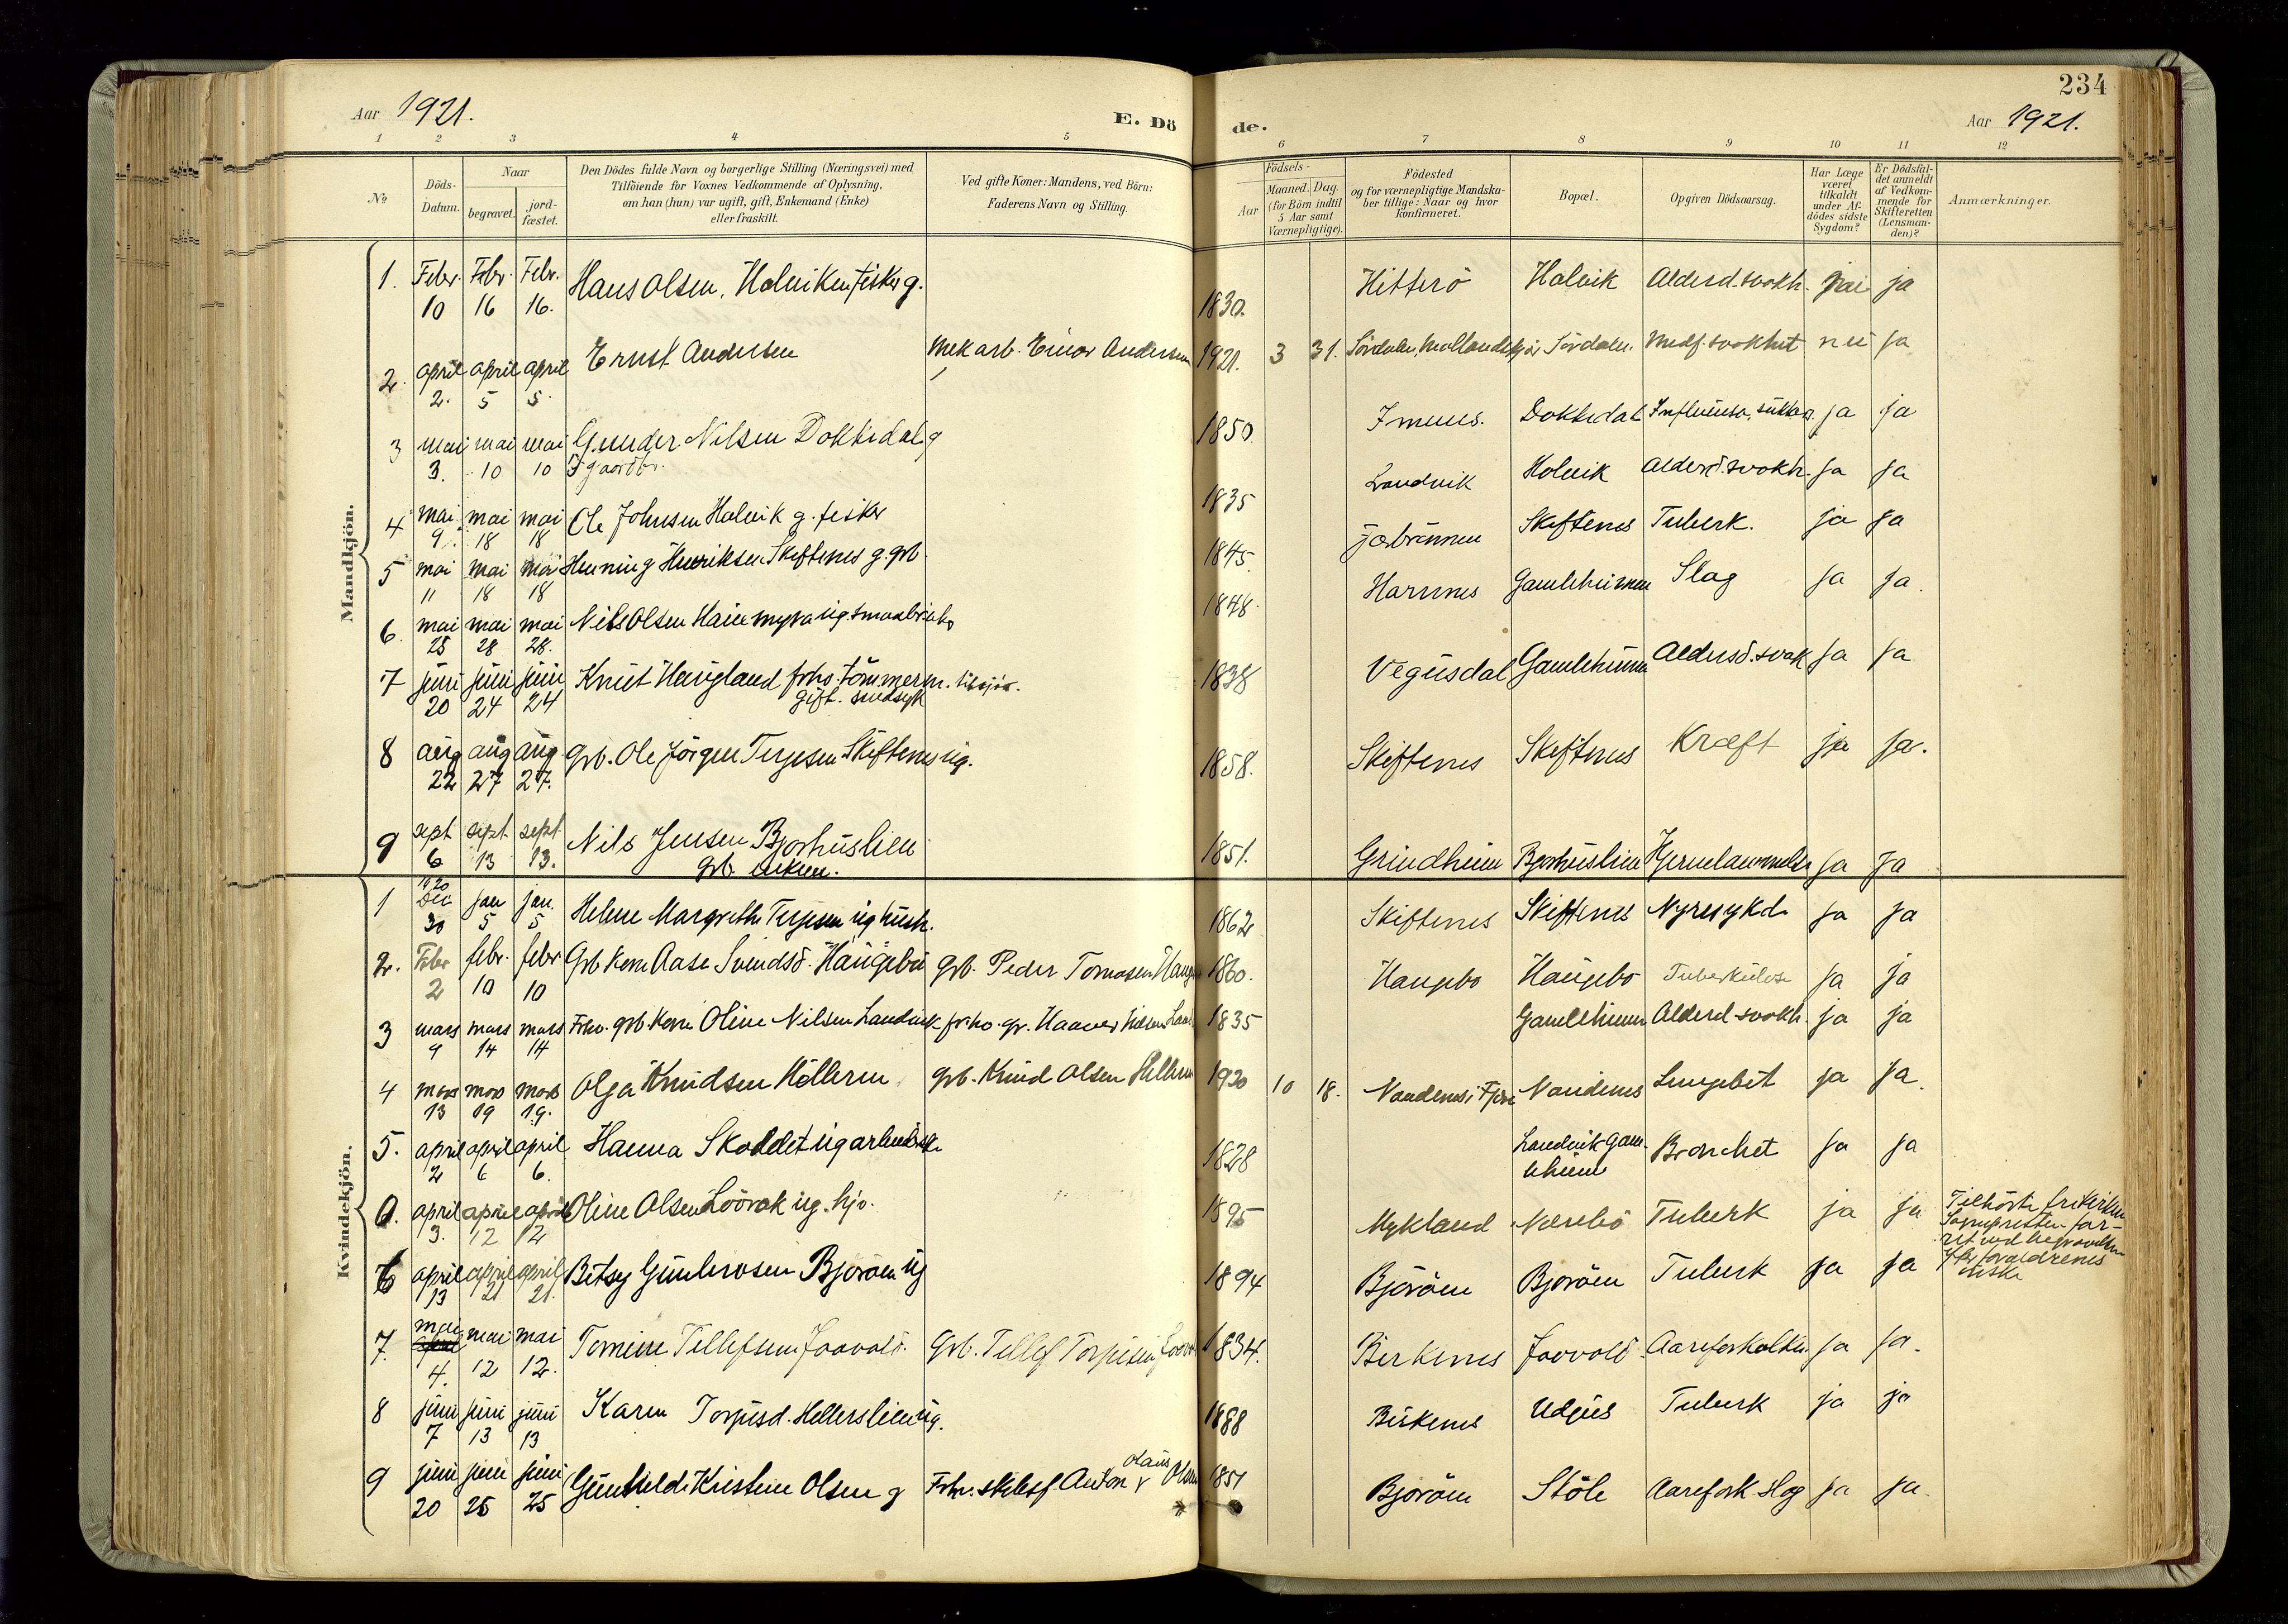 234
Aar 1921.
E. Dö
de.
Aar 1921.
1 2 3 4 5 6 7 8 9 10 11 12
№
Döds-Datum.
Naar
begravet.
jord-fæstet.
Den Dödes fulde Navn og borgerlige Stilling (Næringsvei) med
Tilföiende for Voxnes Vedkommende af Oplysning,
om han (hun) var ugift, gift, Enkemand (Enke)
eller fraskilt.
Ved gifte Koner: Mandens, ved Börn:
Faderens Navn og Stilling.
Födsels-
Aar
Maaned. Dag.
(for Börn indtil
5 Aar samt
Værnepligtige).
Födested
og for værnepligtige Mandska-
ber tillige: Naar og hvor
konfirmeret.
Bopæl.
Opgiven Dödsaarsag.
Har Læge
været
tilkaldt
under Af-
dödes sidste
Sygdom?
Er Dödsfal-
det anmeldt
af Vedkom-
mende for
Skifteretten
(Lensman-
den)?
Anmærkninger.
Mandkjön.
1. Febr. 10 Febr. 16 Febr. 16. Hans Olsen, Holviken fisker g. 1830. Hitterö Holvik Alderd.svakh. ja
2. april 2. april 5 april 5. Ernst Andersen mek arb. Einar Andersen 1921. 3 31. Sördalen, Sördalen. Medf. svakhet nei ja
3 mai 3. mai 10 mai 10 Gunder Nilsen Dokkedal g gaardbr. 1850. Imenes. Dokkedal Influensa, ja ja
4 mai 9. mai 18 mai 18 Ole Johnsen Holvik g. fisker 1835 Landvik Holvik Alderd.svakh. ja ja
5 mai 11 mai 18 mai 18 Henning Henriksen Skiftenes g. grb. 1845. Skiftenes Tuberk. ja ja
6. mai 25 mai 28 mai 28. Nils Olsen ug. 1848. Gamlehimen Slag ja ja.
7 juni 20 juni 24 juni 24 Knut Haugland frhv. tömmerm. gift. sindsyk 1838 Vegusdal Gamlehimen Alderd.svak ja ja
8 aug 22 aug 27 aug 27. Grb. Ole Jörgen Terjesen Skiftenes ug. 1858. Skiftenes Skiftenes Kræft ja ja.
9 sept 6 sept 13 sept 13. Nils Jensen Bjorhuslien grb. enkem. 1851. Grindheim Bjorhuslien ja ja
Kvindekjön.
1 1920 Dec 30 jan 5 jan. 5 Helene Margrethe Terjesen ug 1862 Skiftenes Skiftenes Nyresykd. ja ja
2. Febr 2 febr. 10 febr 10 Grb kone Aase Svendsd. Haugebo Grb. Peder Tomasen 1860. Haugebo Haugebo Tuberkulose ja ja
3 mars 9 mars 14 mars 14 Frhv. grb. kone Oline Nilsen Landvik frhv. gr. 1835 Gamlehimen Alderd-svakh. ja ja
4 mars 13 mars 19 mars 19. Olga Knudsen Hölleren grb. Knud Olsen 1920 10 18. Lungebet ja ja.
5. april 2 april 6 april 6. Hanna Skoddet ug 1828 Landvik gamlehiem Bronchet ja ja
6. april 3. april 12 april 12 Oline Olsen Löörak ug. 1895 Mykland Nærebö Tuberk ja ja Tilhörte frikirken
Sognepresten for-
ret ved begravelsen
forældrenes
önske
6 april 13 april 21 april 21. Betsy Gunderosen Bjoröen ug 1894 Björöen Bjoröen Tuberk ja ja
7. mai 4. mai 12 mai 12. Tomine Tellefsen Joovold. Grb. Tellef Torjusen 1834. Birkenes Joovold Aareforkalkn. ja ja.
8 juni 7 juni 13 juni 13 Karen Torjusd. Hellerslien ug. 1888 Birkenes Udjus Tuberk ja ja
9 juni 20 juni 25 juni 25 Gunhild Kristine Olsen g Frhv. skibsf. Anton Olaus Olsen 1851 Bjoröen Stöle Aarefork Slag ja ja